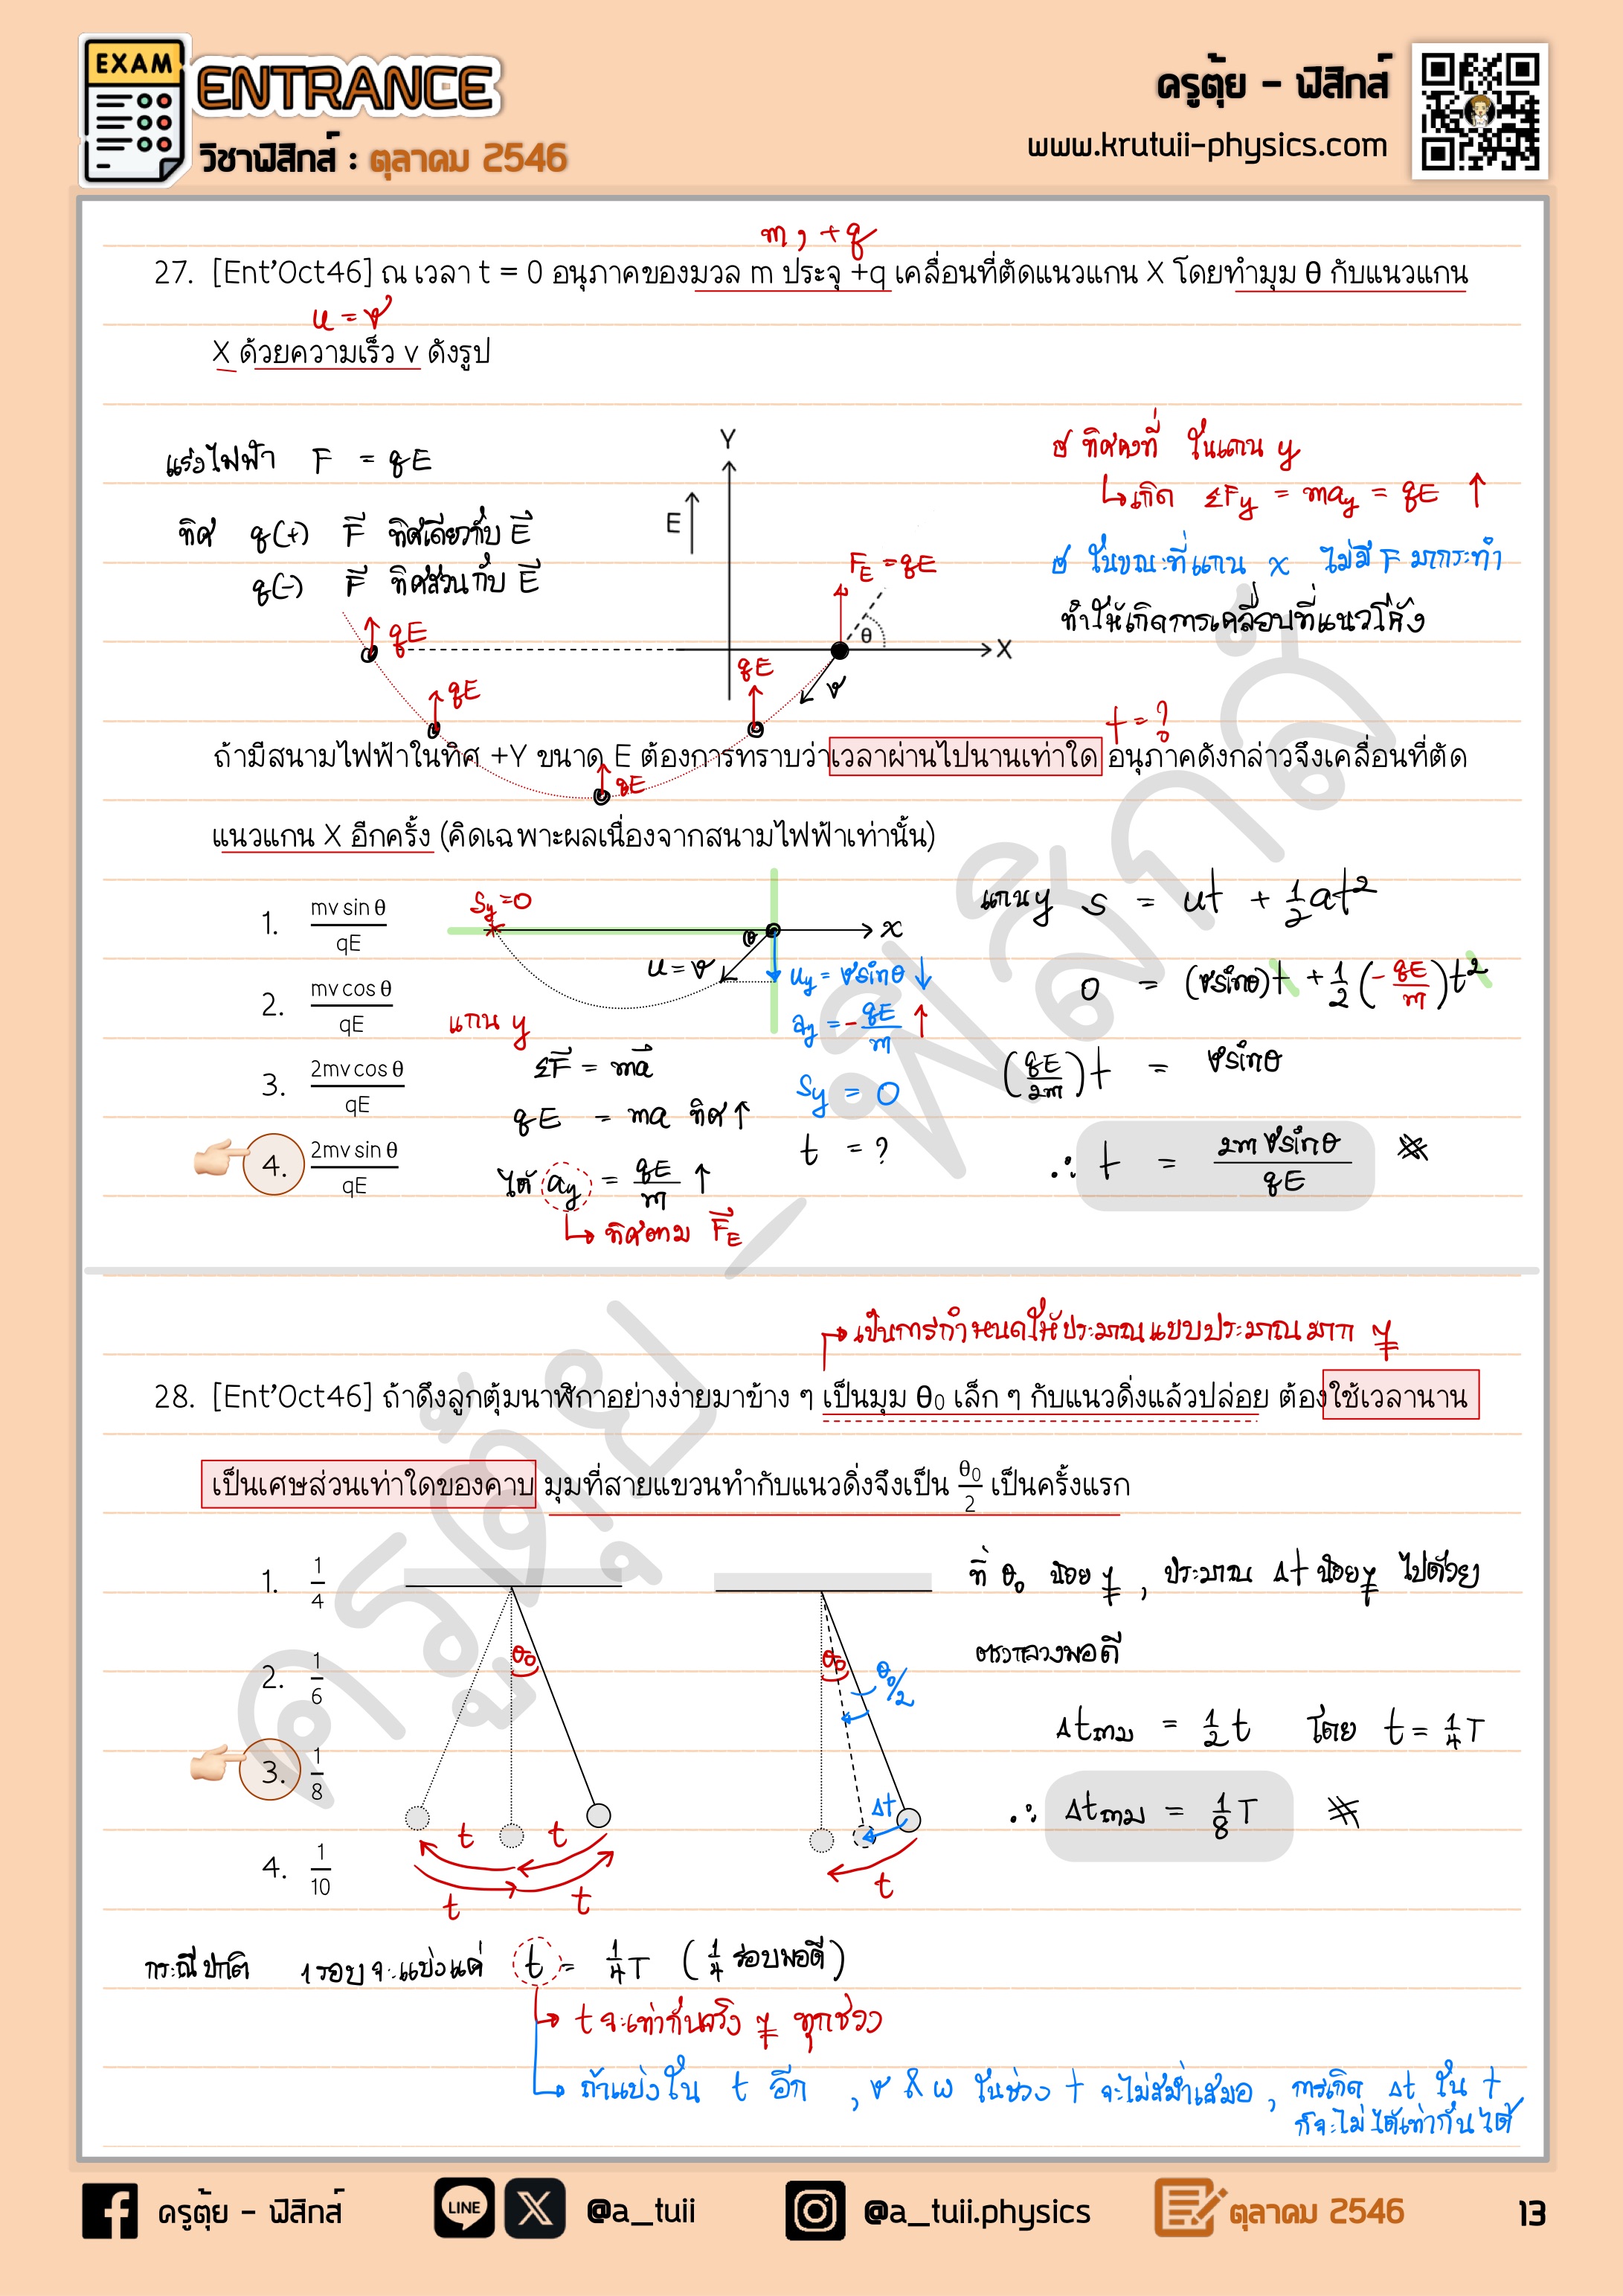 EXAM
ENTRANCE
วิชาฟิสิกส์ : ตุลาคม 2546
ครูตุ้ย - ฟิสิกส์
www.krutuii-physics.com
m, +q
27. [Ent'Oct46] ณ เวลา t = 0 อนุภาคของมวล m ประจุ +q เคลื่อนที่ตัดแนวแกน X โดยทำมุม θ กับแนวแกน
u = v
X ด้วยความเร็ว v ดังรูป
แรงไฟฟ้า F = qE
ทิศ q(+) F⃗ ทิศเดียวกับ E⃗
q(-) F⃗ ทิศสวนกับ E⃗
Y
E
X
θ
v
F_E = qE
qE
qE
qE
qE
ทิศคงที่ ในแกน y
↳ เกิด ΣFy = may = qE ↑
ในขณะที่แกน x ไม่มี F มากระทำ
ทำให้เกิดการเคลื่อนที่แนวโค้ง
t = ?
ถ้ามีสนามไฟฟ้าในทิศ +Y ขนาด E ต้องการทราบว่าเวลาผ่านไปนานเท่าใด อนุภาคดังกล่าวจึงเคลื่อนที่ตัด
แนวแกน X อีกครั้ง (คิดเฉพาะผลเนื่องจากสนามไฟฟ้าเท่านั้น)
1. mv sin θ / qE
2. mv cos θ / qE
3. 2mv cos θ / qE
4. 2mv sin θ / qE
Sy = 0
θ
x
u = v
uy = v sinθ ↓
ay = - qE/m ↑
Sy = 0
t = ?
แกน y
ΣF⃗ = ma⃗
qE = ma ทิศ ↑
ได้ ay = qE/m ↑
↳ ทิศตาม F⃗_E
แกน y s = ut + 1/2 at²
0 = (v sinθ)t + 1/2 (- qE/m)t²
(qE/2m)t = v sinθ
∴ t = 2mv sinθ / qE
↳ เป็นการกำหนดให้ประมาณแบบประมาณมาก ๆ
28. [Ent'Oct46] ถ้าดึงลูกตุ้มนาฬิกาอย่างง่ายมาข้าง ๆ เป็นมุม θ₀ เล็ก ๆ กับแนวดิ่งแล้วปล่อย ต้องใช้เวลานาน
เป็นเศษส่วนเท่าใดของคาบ มุมที่สายแขวนทำกับแนวดิ่งจึงเป็น θ₀/2 เป็นครั้งแรก
1. 1/4
2. 1/6
3. 1/8
4. 1/10
θ₀
t
t
t
t
θ₀
θ₀/2
Δt
t
ที่ θ₀ น้อย ๆ , ประมาณ Δt น้อย ๆ ไปด้วย
ตรงกลางพอดี
Δtถาม = 1/2 t โดย t = 1/4 T
∴ Δtถาม = 1/8 T
กรณีปกติ 1 รอบ จะแบ่งแค่ t = 1/4 T (1/4 รอบพอดี)
↳ t จะเท่ากันจริง ๆ ทุกช่วง
↳ ถ้าแบ่งใน t อีก , v & ω ในช่วง t จะไม่สม่ำเสมอ , การเกิด Δt ใน t
ก็จะไม่ได้เท่ากันได้
ครูตุ้ย - ฟิสิกส์
ครูตุ้ย - ฟิสิกส์
LINE
@a_tuii
@a_tuii.physics
ตุลาคม 2546
13